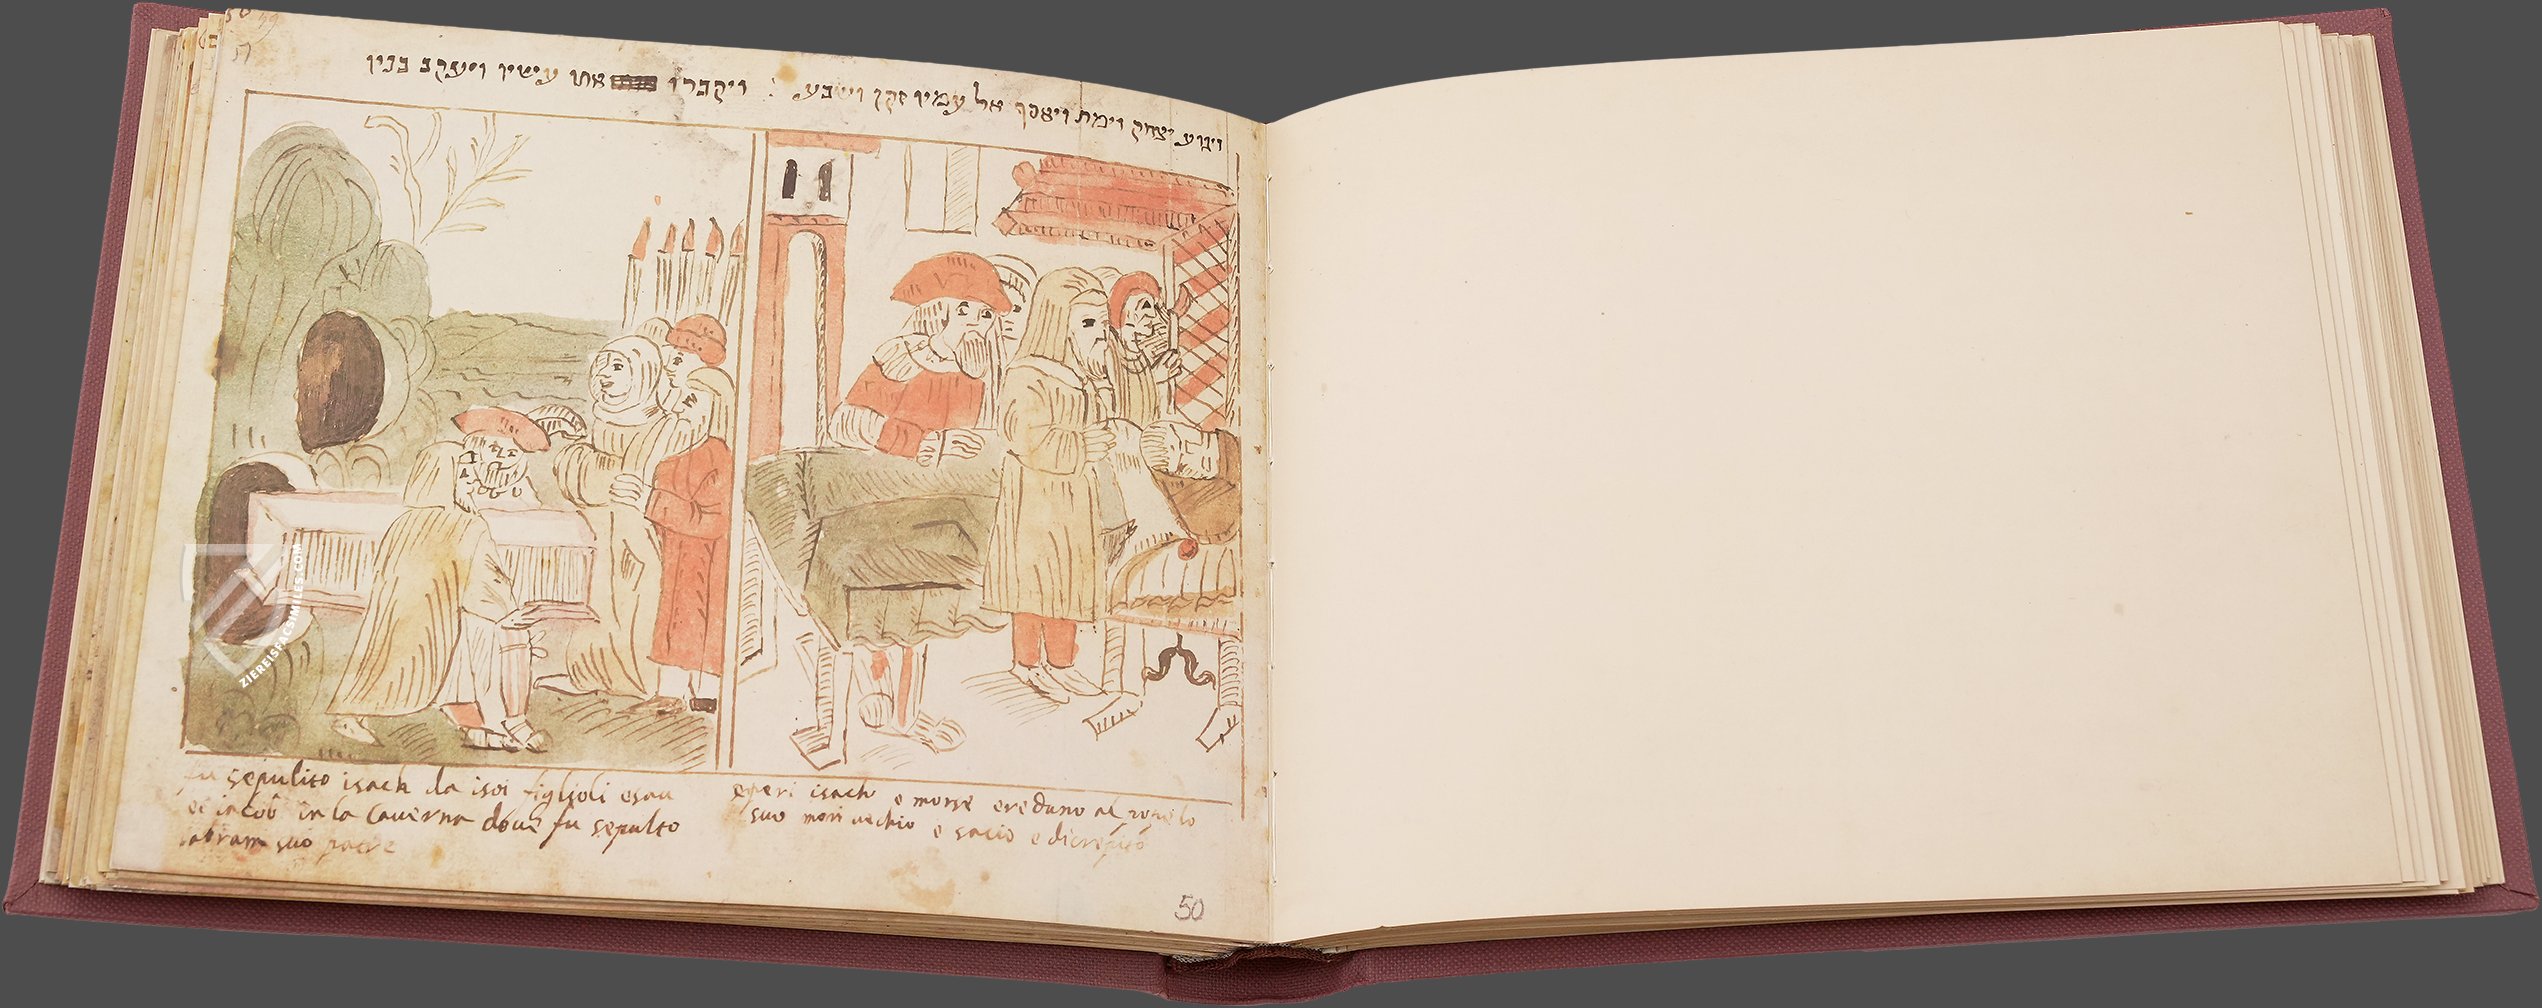 51
ויגוע יצחק וימת ויאסף אל עמיו זקן ושבע : ויקברו אתו עשיו ויעקב בניו
fu sepulito isach da isoi figlioli esau
et iacob in la caverna dove fu sepulto
abram suo patre
eperi isach e morse
suo mori vechio e sacio e dicrepito
50
ZIEREISFACSIMILES.COM